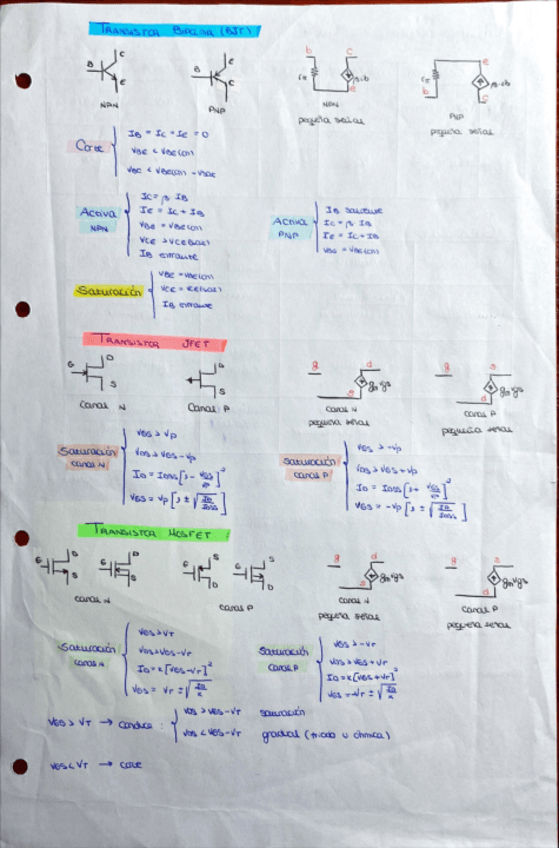 TRANSISTOR BIPOLAR (BJT)
B C E
NPN
B E C
PNP
b c
rπ β·ib
e
NPN
pequeña señal
e
rπ β·ib
b c
PNP
pequeña señal
Corte
IB = IC = IE = 0
VBE < VBE(on)
Activa
NPN
IC = β IB
IE = IC + IB
VBE = VBE(on)
VCE > VCE(sat)
IB entrante
Activa
PNP
IB saliente
IC = β IB
IE = IC + IB
Saturación
VBE = VBE(on)
VCE = CE(sat)
IB entrante
TRANSISTOR JFET
G D S
Canal N
D S
Canal P
g d
gm·vgs
s
canal N
pequeña señal
g s
gm·vgs
d
canal P
pequeña señal
Saturación
canal N
VGS > Vp
VDS > VGS - Vp
ID = IDSS [1 - VGS/Vp]²
VGS = Vp [1 ± √(ID/IDSS)]
Saturación
canal P
VGS > -Vp
VDS > VGS + Vp
ID = IDSS [1 + VGS/Vp]²
VGS = -Vp [1 ± √(ID/IDSS)]
TRANSISTOR MOSFET:
G D S
G D S
canal N
G S D
G S D
canal P
g d
gm·vgs
s
canal N
pequeña señal
g s
gm·vgs
d
canal P
pequeña señal
Saturación
canal N
VGS > VT
VDS > VGS - VT
ID = K [VGS - VT]²
VGS = VT ± √(ID/K)
Saturación
canal P
VGS > -VT
VDS > VGS + VT
ID = K [VGS + VT]²
VGS = -VT ± √(ID/K)
VGS > VT → conduce :
VDS > VGS - VT saturación
VDS < VGS - VT gradual (triodo u óhmica)
VGS < VT → corte